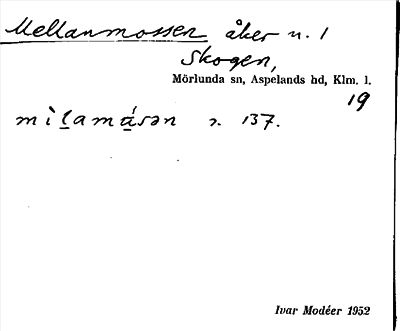 Mellanmossen åker n. 1
Skogen,
Mörlunda sn, Aspelands hd, Klm. l.
19
mìlamásən 137.
Ivar Modéer 1952